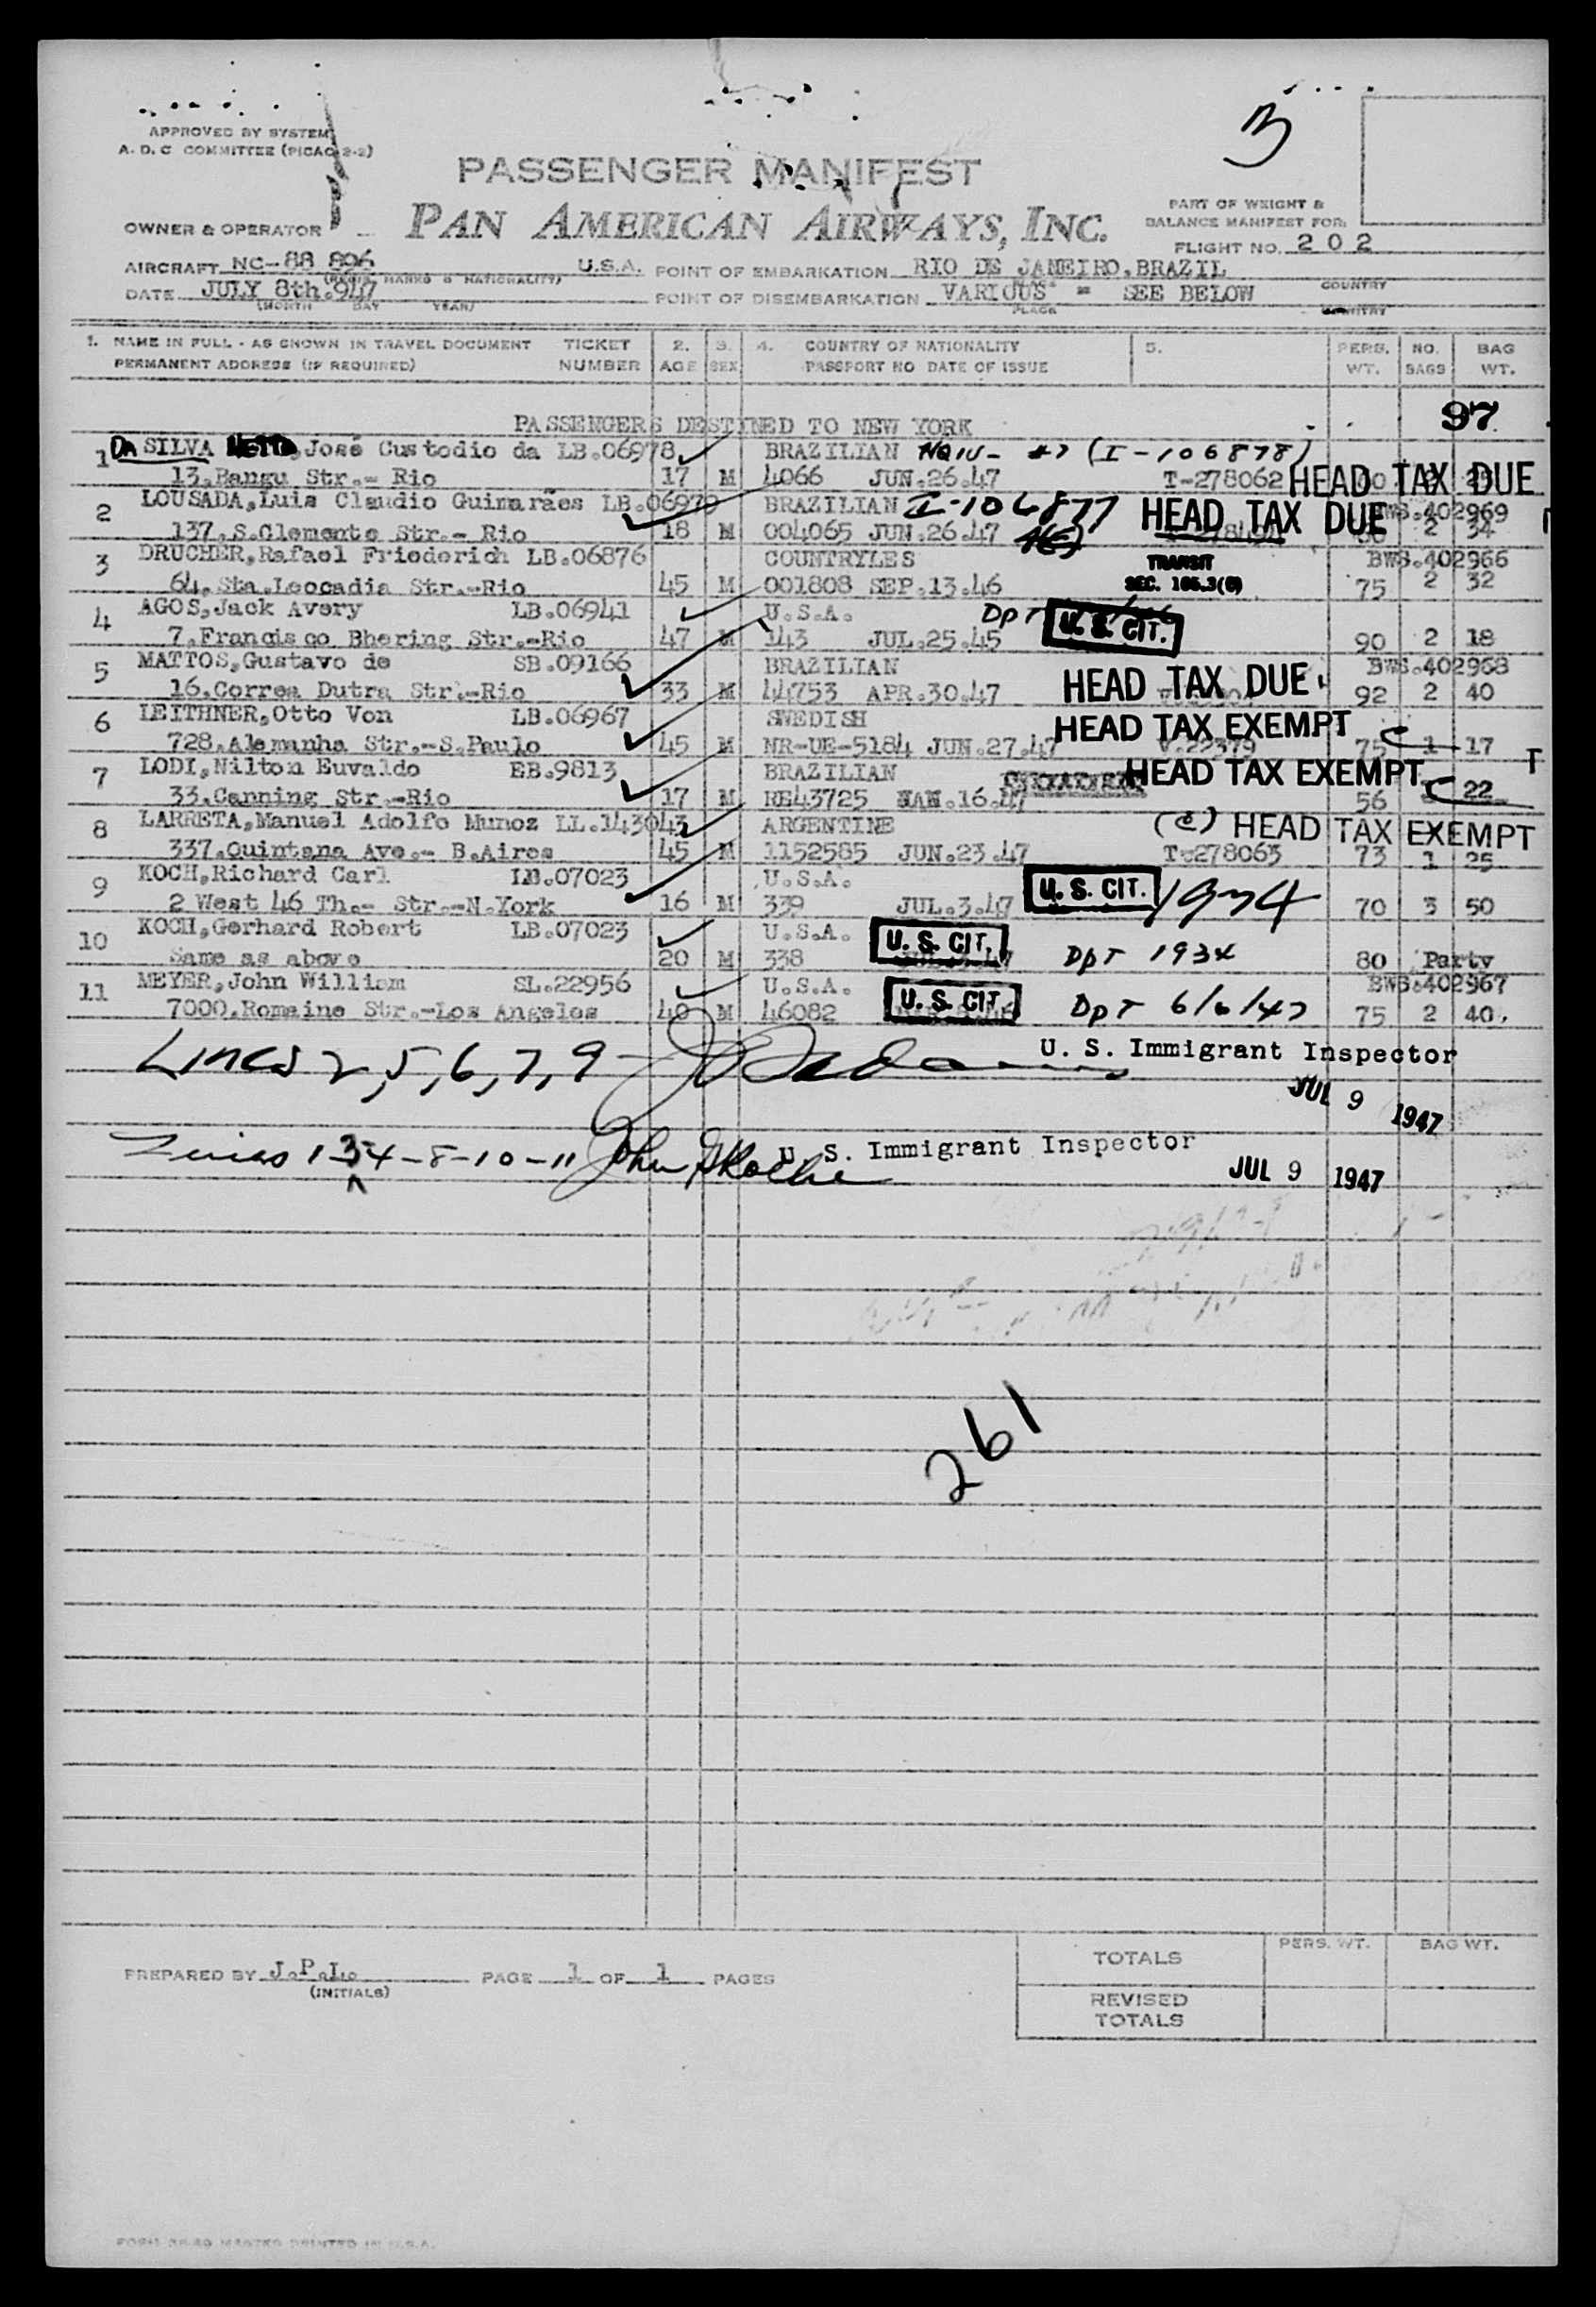 APPROVED BY SYSTEM
A. D. C COMMITTEE (PICAO 2-2)
3
PASSENGER MANIFEST
PAN AMERICAN AIRWAYS, INC.
PART OF WEIGHT &
BALANCE MANIFEST FOR:
OWNER & OPERATOR
FLIGHT NO. 2 0 2
AIRCRAFT NC-88 896 U.S.A. POINT OF EMBARKATION RIO DE JANEIRO, BRAZIL
MARKS & NATIONALITY) COUNTRY
DATE JULY 8th.947 POINT OF DISEMBARKATION VARIOUS - SEE BELOW
(MONTH DAY YEAR) PLACE COUNTRY
1. NAME IN FULL - AS SHOWN IN TRAVEL DOCUMENT TICKET 2. 3. 4. COUNTRY OF NATIONALITY 5. PERS. NO. BAG
PERMANENT ADDRESS (IF REQUIRED) NUMBER AGE SEX PASSPORT NO DATE OF ISSUE WT. BAGS WT.
97
PASSENGERS DESTINED TO NEW YORK
1 Da SILVA José Custodio da LB.06978 BRAZILIAN (I-106878)
13.Bangu Str.- Rio 17 M 4066 JUN.26.47 T-278062 HEAD TAX DUE
2 LOUSADA,Luis Claudio Guimarães LB.06979 BRAZILIAN I-106877 HEAD TAX DUE BWS.402969
137.S.Clemente Str.- Rio 18 M 004065 JUN.26.47 2 34
3 DRUCHER,Rafael Friederich LB.06876 COUNTRYLES TRANSIT BWS.402966
64.Sta.Leocadia Str.-Rio 45 M 001808 SEP.13.46 SEC. 105.3(C) 75 2 32
4 AGOS,Jack Avery LB.06941 U.S.A. DpT U. S. CIT.
7.Francisco Bhering Str.-Rio 47 M 143 JUL.25.45 90 2 18
5 MATTOS,Gustavo de SB.09166 BRAZILIAN BWS.402968
16.Correa Dutra Str.-Rio 33 M 44753 APR.30.47 HEAD TAX DUE 92 2 40
6 LEITHNER,Otto Von LB.06967 SWEDISH HEAD TAX EXEMPT C
728.Alemanha Str.-S.Paulo 45 M NR-UE-5184 JUN.27.47 V.22379 75 1 17
T
7 LODI,Nilton Euvaldo EB.9813 BRAZILIAN HEAD TAX EXEMPT C
33.Canning Str.-Rio 17 M RE43725 JAN.16.47 56 22
8 LARRETA,Manuel Adolfo Munoz LL.143043 ARGENTINE (C) HEAD TAX EXEMPT
337.Quintana Ave.- B.Aires 45 M 1152585 JUN.23.47 T-278063 73 1 25
9 KOCH,Richard Carl LB.07023 U.S.A. U. S. CIT. 1934
2 West 46 Th.- Str.-N.York 16 M 339 JUL.3.47 70 3 50
10 KOCH,Gerhard Robert LB.07023 U.S.A. U. S. CIT. DpT 1934
Same as above 20 M 338 80 Party
11 MEYER,John William SL.22956 U.S.A. U. S. CIT. BWS.402967
7000.Romaine Str.-Los Angeles 40 M 46082 DpT 6/6/47 75 2 40
Lines 2, 5, 6, 7, 9 - U. S. Immigrant Inspector
JUL 9 1947
Lines 1-3-4-8-10-11 John U. S. Immigrant Inspector
JUL 9 1947
261
PREPARED BY J.P.L. PAGE 1 OF 1 PAGES
(INITIALS)
TOTALS PERS. WT. BAG WT.
REVISED
TOTALS